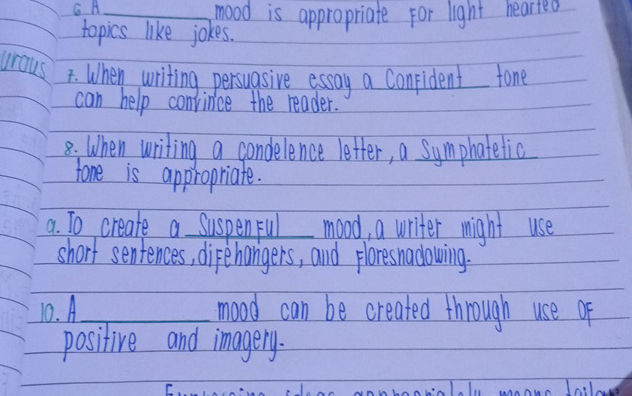 6. A ________ mood is appropriate For light hearted
topics like jokes.
7. When writing persuasive essay a Confident tone
can help convince the reader.
8. When writing a condelence letter, a Symphatetic
tone is appropriate.
9. To create a SuspenFul mood, a writer might use
short sentences, difehangers, and Floreshadowing.
10. A ________ mood can be created through use of
positive and imagery.